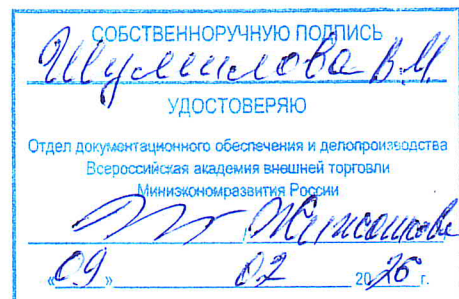 СОБСТВЕННОРУЧНУЮ ПОДПИСЬ
Шумилова В.М.
УДОСТОВЕРЯЮ
Отдел документационного обеспечения и делопроизводства
Всероссийская академия внешней торговли
Минэкономразвития России
«09» 02 2026 г.